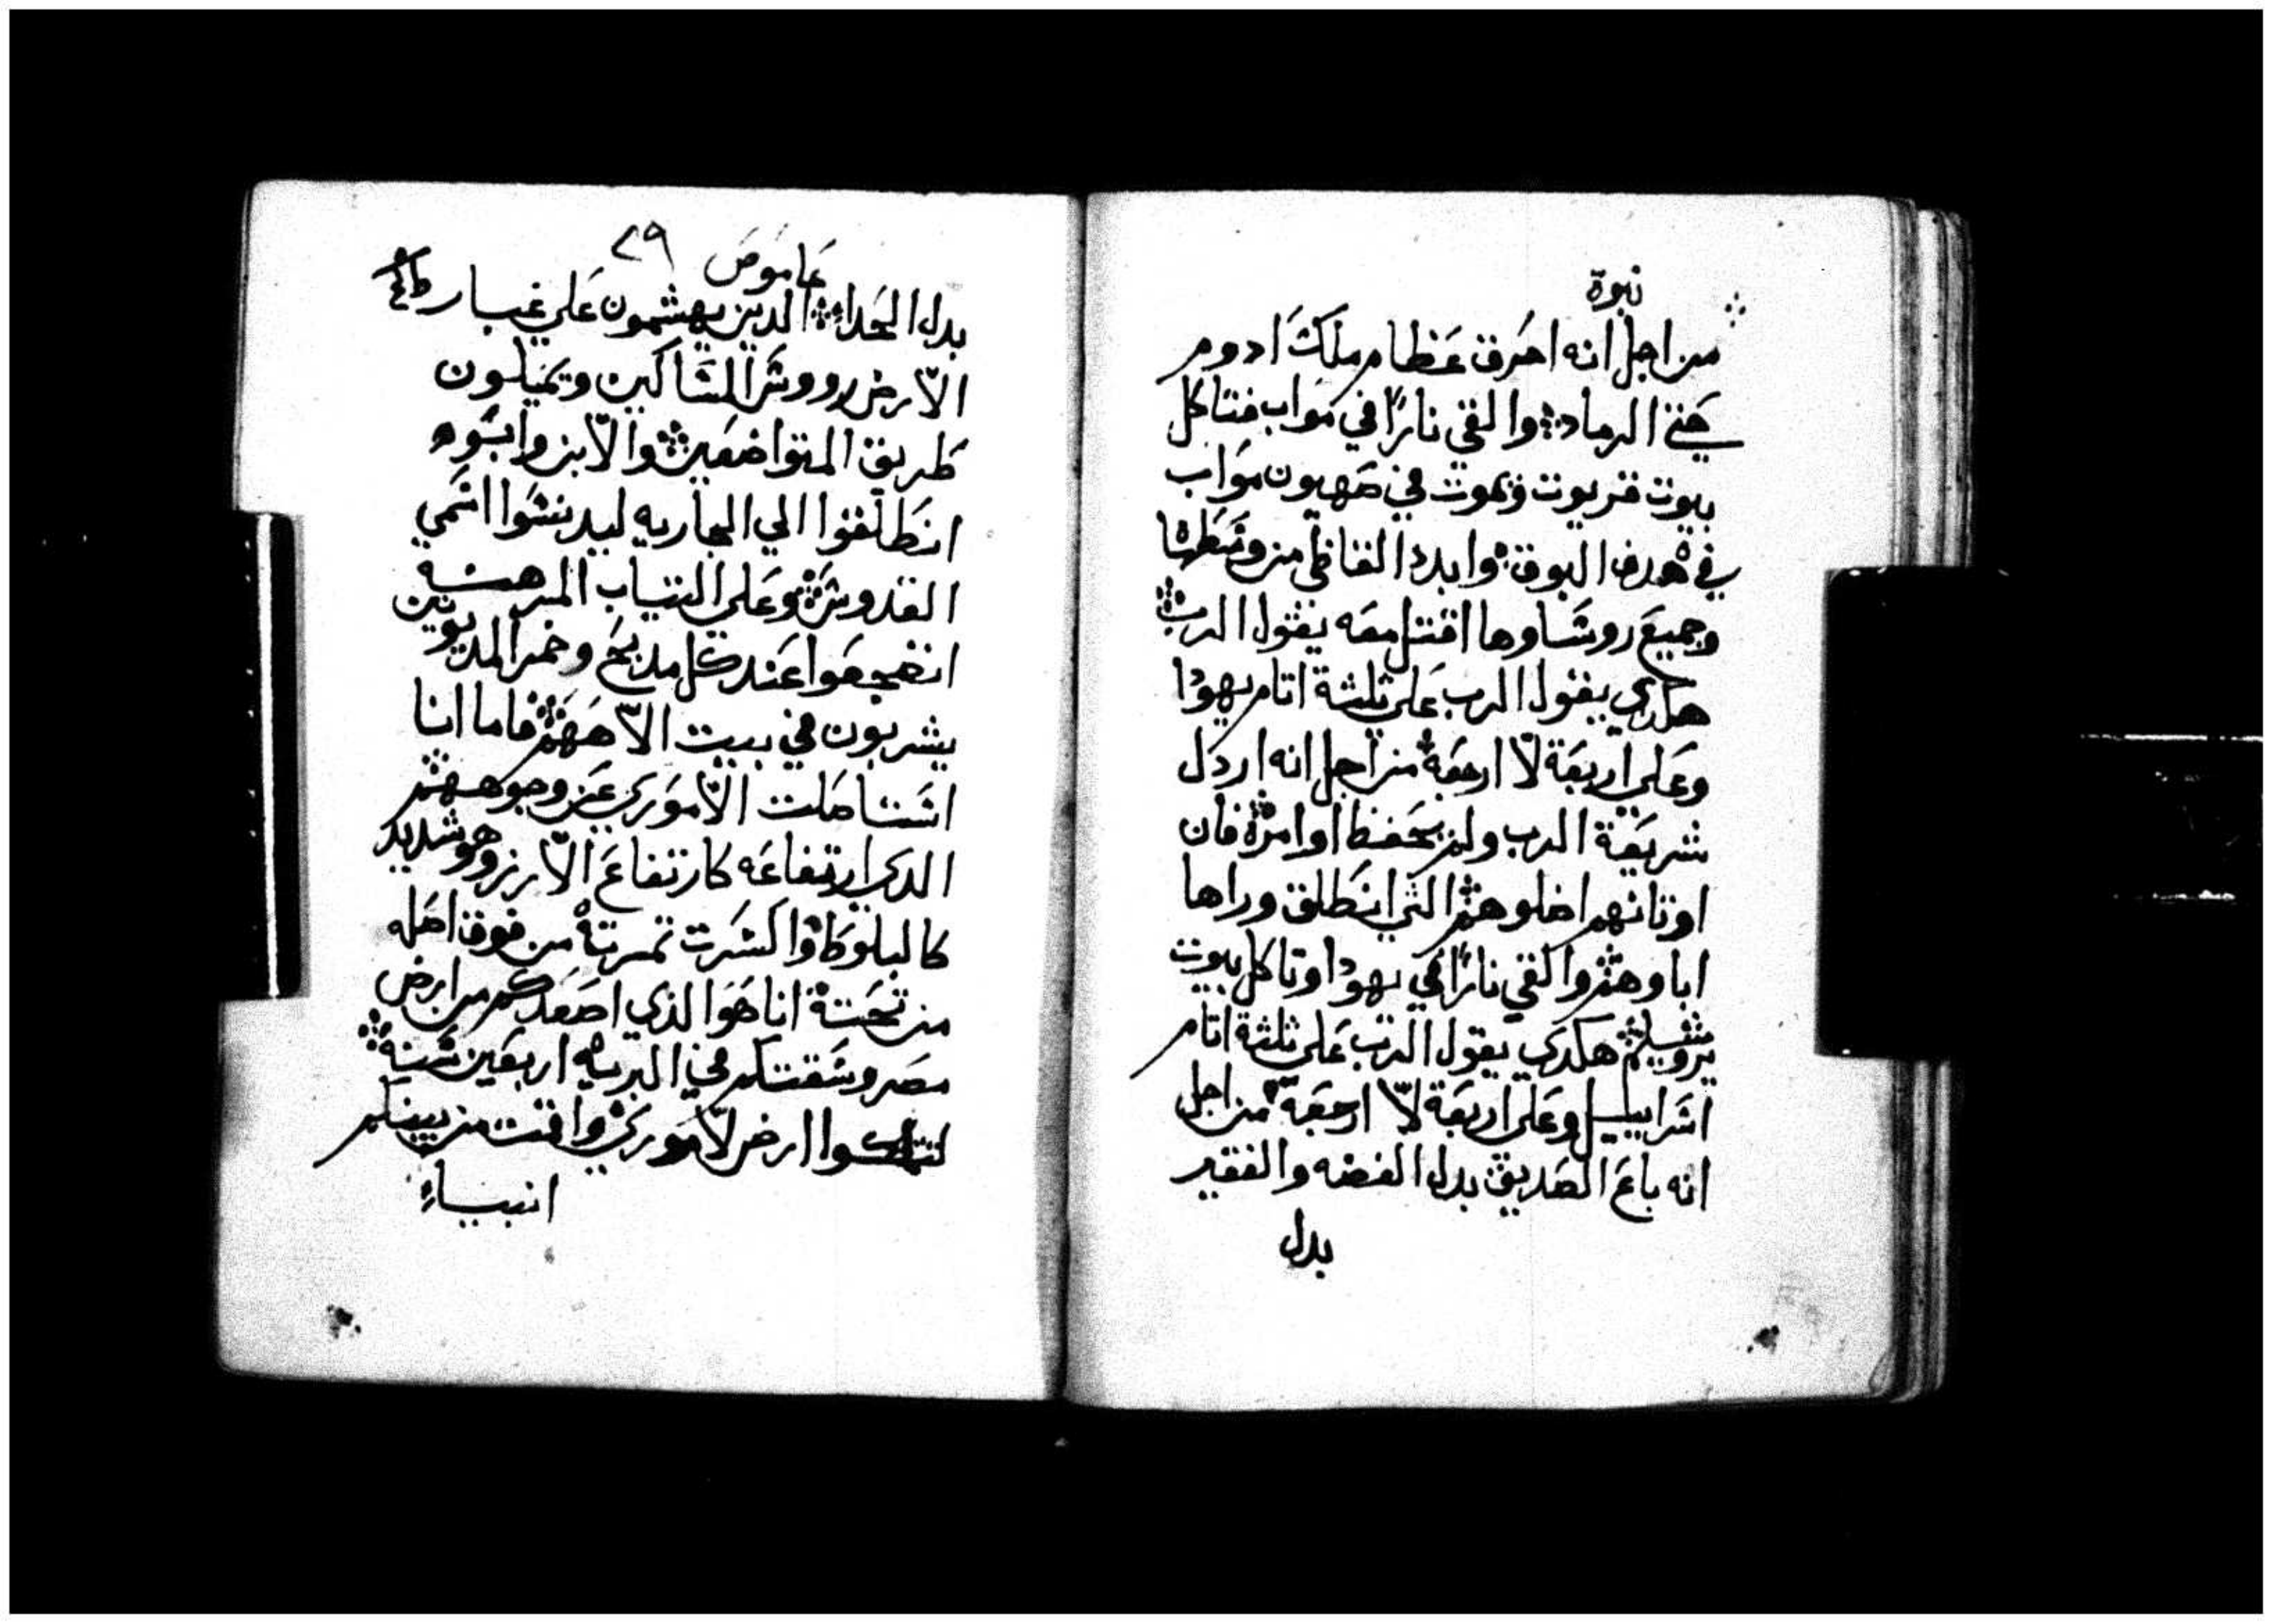 نبوة
من اجل انه احرق عظام ملك ادوم
حتي الرماد والقي نارًا في مواب فتاكل
بيوت قريوت وتموت في صهيون مواب
في هدف البوق وابدد القاظي من وسطها
وجميع روساوها اقتل معه يقول الرب
هكدي يقول الرب علي ثلثة اتام يهودا
وعلي اربعة لا ارجعه من اجل انه اردل
شريعة الرب ولم يحفظ اوامره فان
اوتانهم اضلوهم التي انطلق وراها
اباوهم والقي نارًا في يهودا وتاكل بيوت
يروشليم هكدي يقول الرب علي ثلثة اتام
اسراييل وعلي اربعة لا ارجعه من اجل
انه باع الصديق بدل الفضه والفقير
بدل
عاموص ٢٩
بدل الحداء الدين يهشمون علي غبار
الارض رووس المساكين ويميلون
طريق المتواضعين والابن وابوه
انطلقوا الي الجاريه ليدنسوا اسمي
القدوس وعلي التياب المرهنه
انضجعوا عند كل مدبح وخمر المديونين
يشربون في بيت الاههم فاما انا
استاصلت الاموري عن وجوههم
الدي ارتفاعه كارتفاع الارز وهو شديد
كالبلوط واكسرت تمرته من فوق اصله
من تحته انا هو الذي اصعدكم من ارض
مصر وسقتكم في البريه اربعين سنه
لتملكوا ارض لاموري واقت من بينكم
انبياء